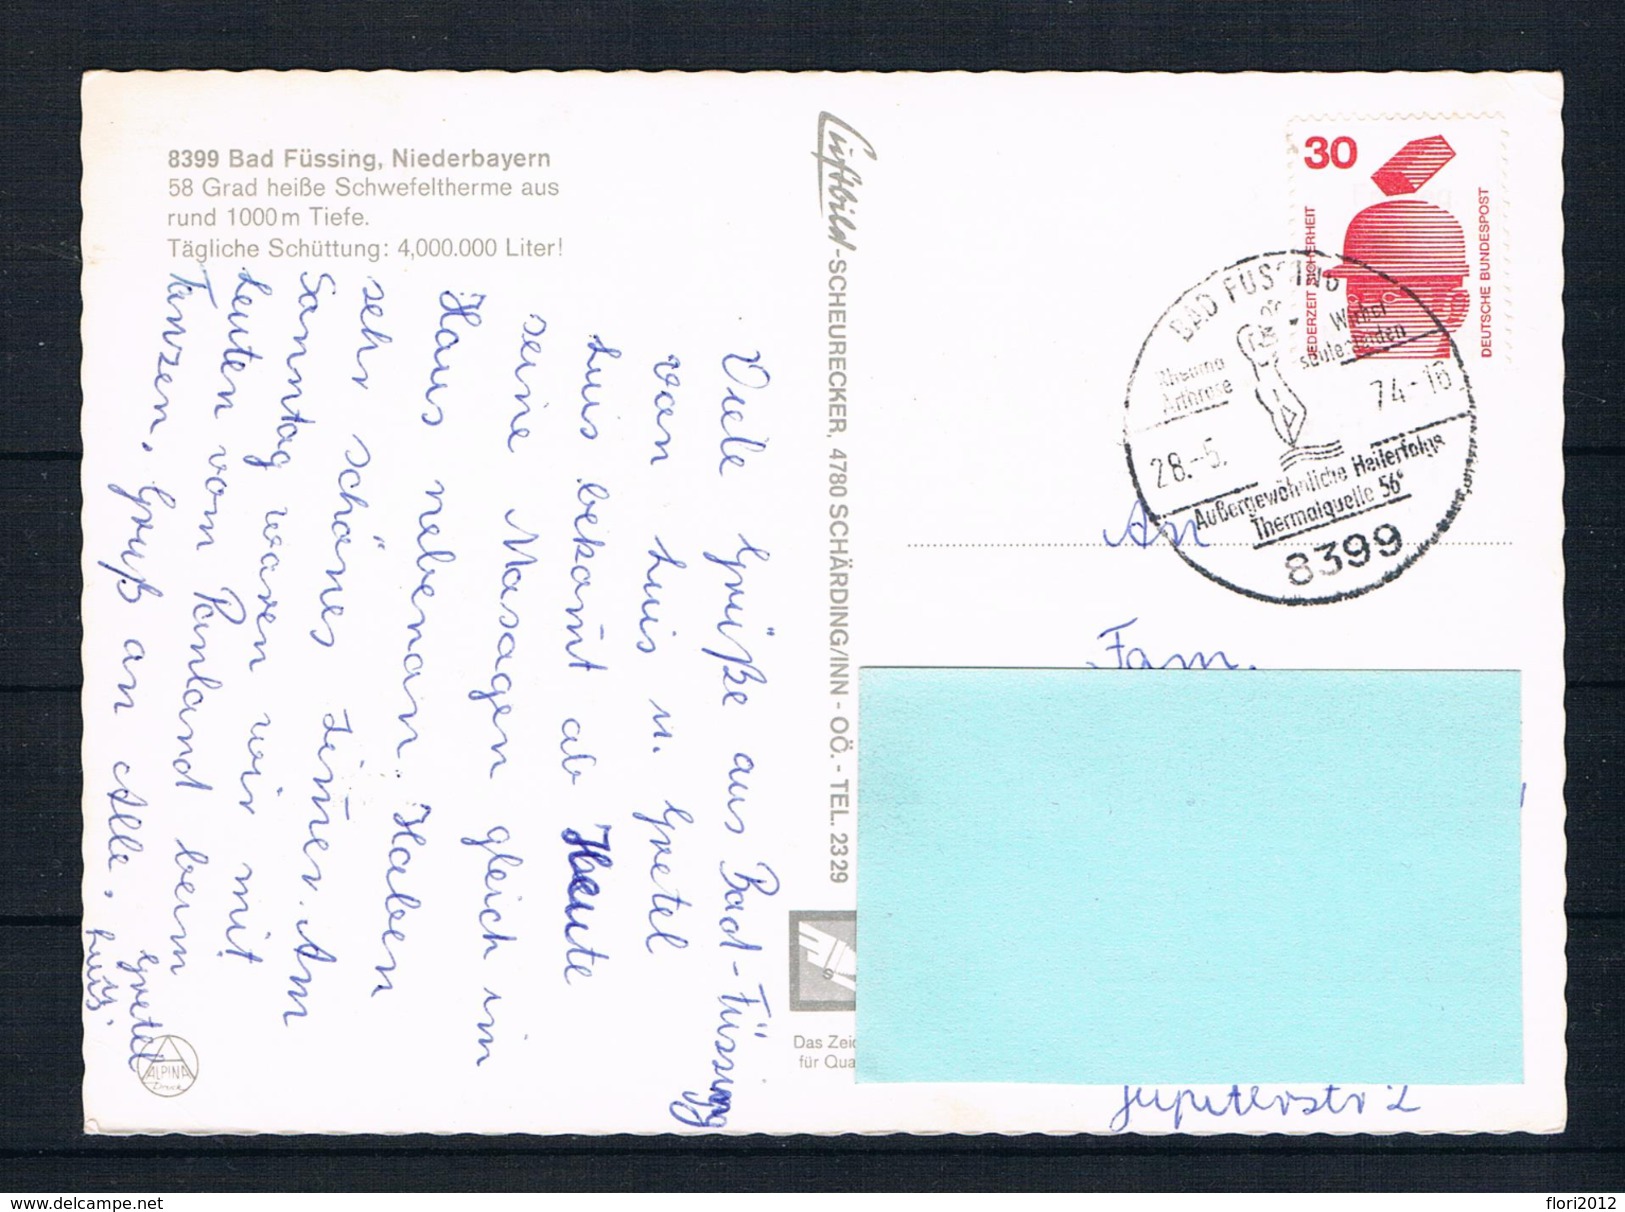 8399 Bad Füssing, Niederbayern
58 Grad heiße Schwefeltherme aus
rund 1000 m Tiefe.
Tägliche Schüttung: 4,000.000 Liter!
Viele Grüße aus Bad-Füssing
von Luis u. Gretel
Luis bekom̄t ab Heute
seine Masagen gleich im
Haus nebenan. Haben
sehr schönes Zim̄er. Am
Sonntag waren wir mit
Leuten vom Panland beim
Tanzen. Gruß an Alle.
Gretel
Luis.
ALPINA
Druck
Luftbild-SCHEURECKER, 4780 SCHÄRDING/INN - OÖ. - TEL. 2329
Das Zeic
für Qua
30
JEDERZEIT SICHERHEIT
DEUTSCHE BUNDESPOST
BAD FÜSSING
Rheuma
Arthrose
Wirbel
säulenleiden
28.-5.
74-16
Außergewöhnliche Heilerfolge
Thermalquelle 56°
8399
An
Fam.
Jupiterstr 2
www.delcampe.net
flori2012